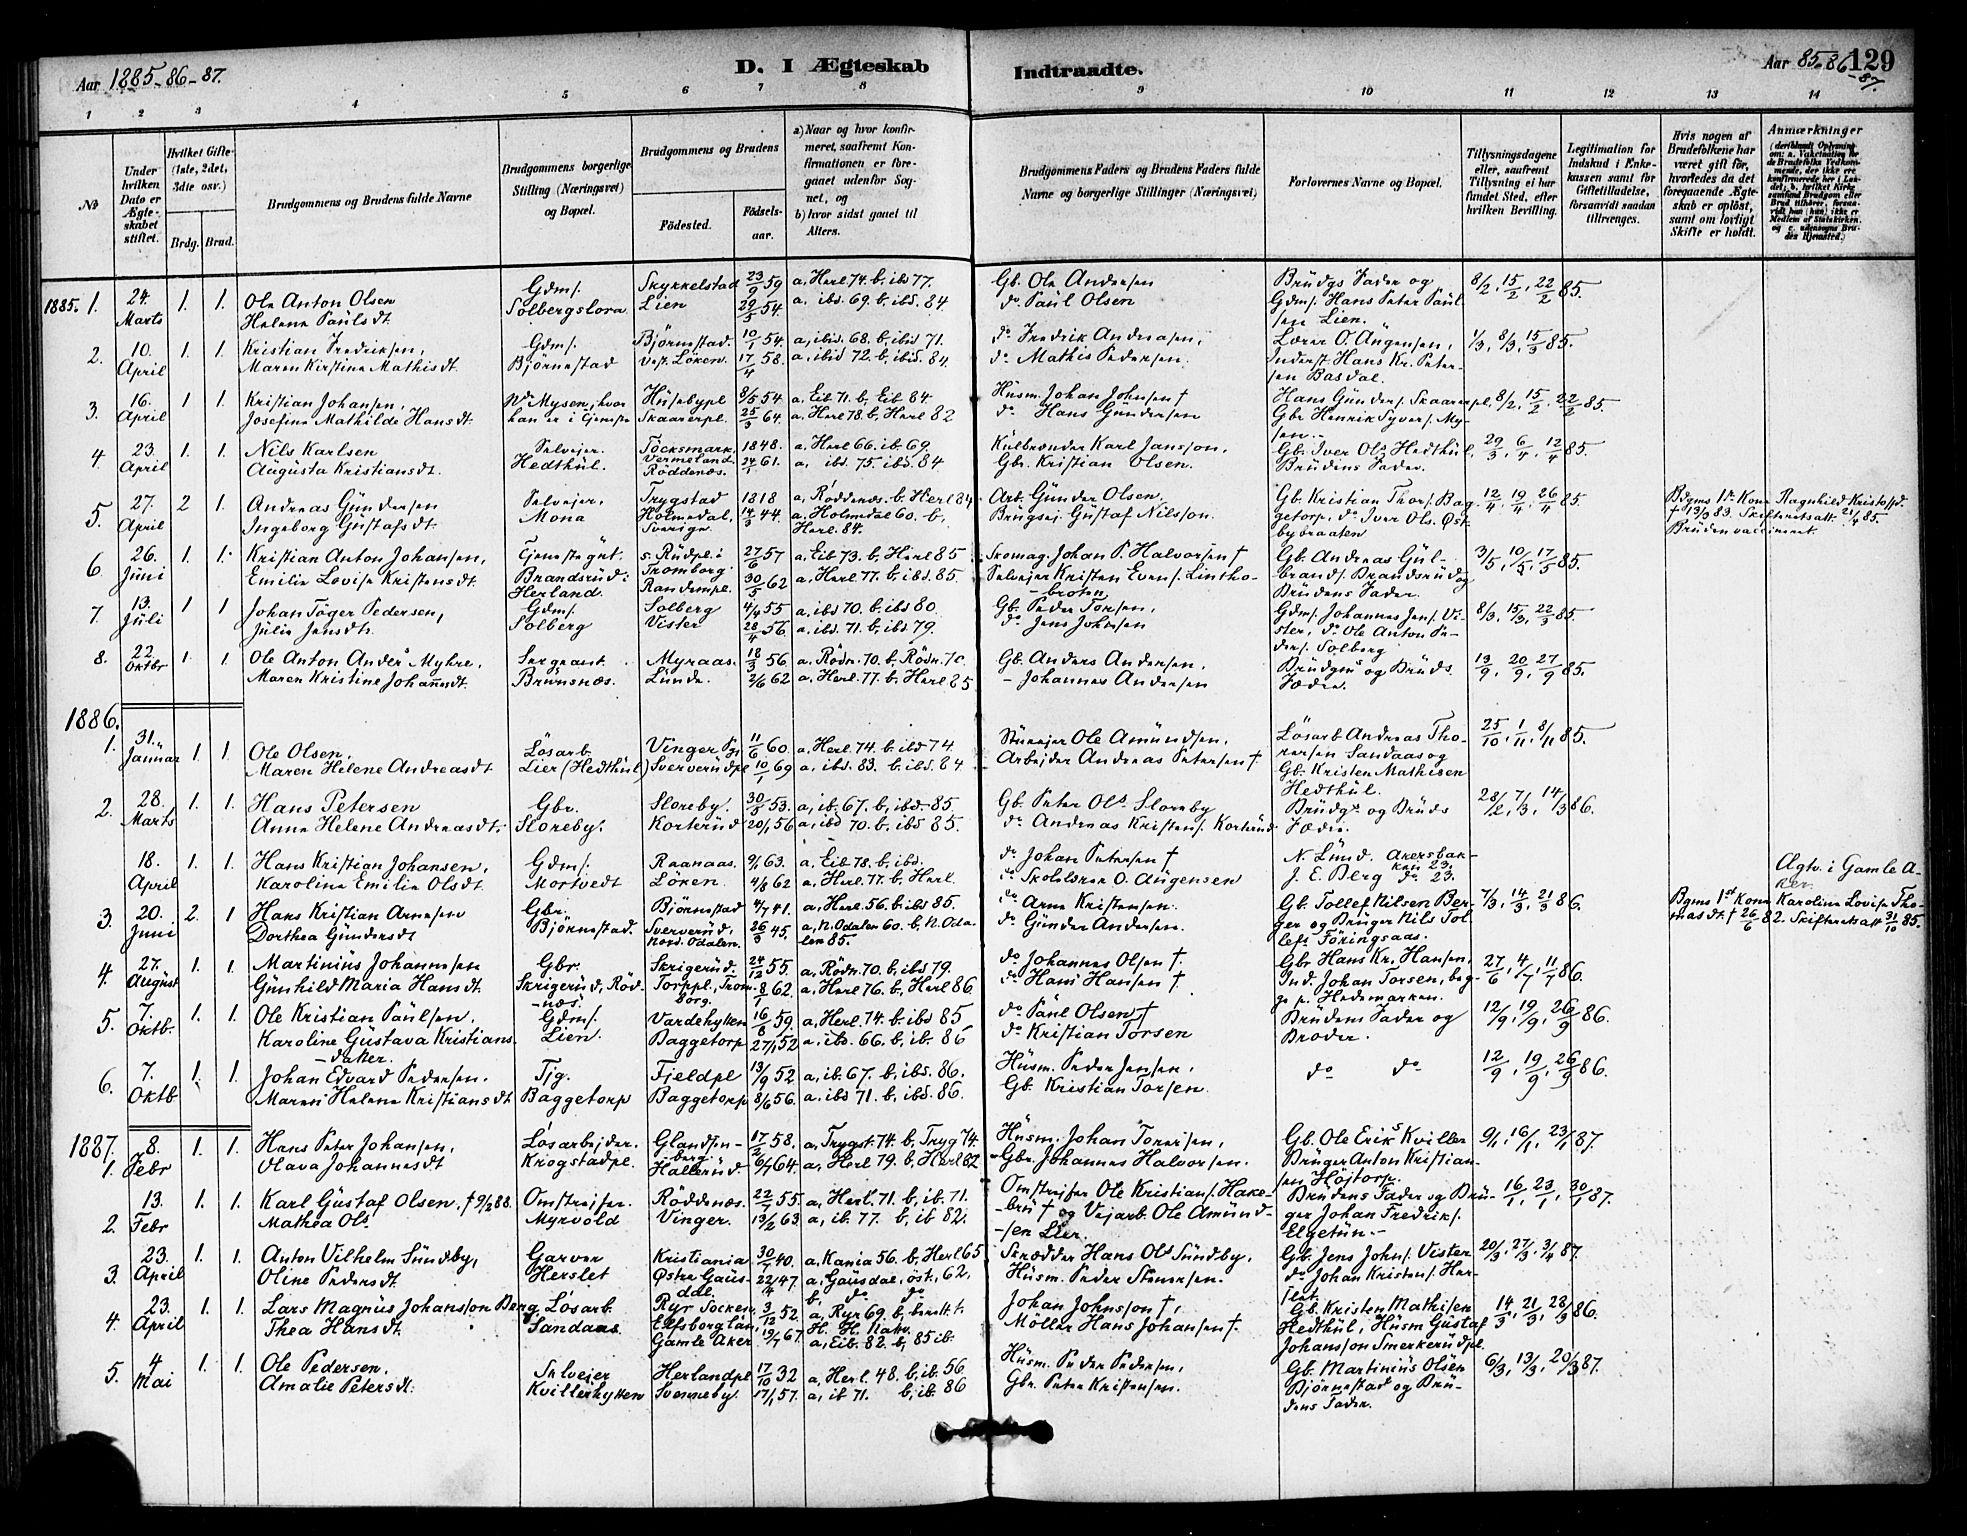 Aar 1885-86-87.
D. I Ægteskab
Indtraadte.
Aar 85-86-87. 129
1 2 3 4 5 6 7 8 9 10 11 12 13 14
No
Under hvilken Dato er Ægteskabet stiftet.
Hvilket Gifte (1ste, 2det, 3die osv.)
Brdg. Brud.
Brudgommens og Brudens fulde Navne
Brudgommens borgerlige Stilling (Næringsvei) og Bopæl.
Brudgommens og Brudens
Fødested. Fødselsaar.
a) Naar og hvor konfirmeret, saafremt Konfirmationen er foregaaet udenfor Sognet, og
b) hvor sidst gaaet til Alters.
Brudgommens Faders og Brudens Faders fulde Navne og borgerlige Stillinger (Næringsvei)
Forlovernes Navne og Bopæl.
Tillysningsdagene eller, saafremt Tillysning ei har fundet Sted, efter hvilken Bevilling.
Legitimation for Indskud i Enkekassen samt for Giftetilladelse, forsaavidt saadan tiltrænges.
Hvis nogen af Brudefolkene har været gift før, hvorledes da det foregaaende Ægteskab er opløst, samt om lovligt Skifte er holdt.
Anmærkninger
1885. 1. 24. Marts 1. 1. Ole Anton Olsen Gdms. Skykkelstad 23/9 59 a, Herl 74. b, ibs 77. Gb. Ole Andersen Brudgs Fader og 8/2, 15/2, 22/2 85.
Helene Paulsdt Solbergslora Lien 29/5 54. a. ibs. 69. b, ibd. 84 do Paul Olsen Gdms. Hans Peter Paulsen Lien.
2. 10. April 1. 1. Kristian Fredriksen, Gdms. Björnestad. 10/1 54. a, ibid. 68. b, ibid 71. do Fredrik Andersen, Lærer O. Aügensen, 1/3, 8/3, 15/3 85.
Maren Kirstine Mathisdt. Björnestad Vest. Löken. 17/4 58. a, ibid 72. b, ibid. 84. do Mathis Pedersen. Inderst Hans Kr. Petersen Basdal.
3. 16. April 1 1. Kristian Johansen, Mysen, hvor Hüsebypl 8/5 54 a. Eib 71. b, Eib 84 Hüsm. Johan Johnsen † Hans Günders. Skaarerpl. 8/2, 15/2, 22/2 85.
Josefine Mathilde Hansdt. han er i Tjeneste Skaarerpl. 25/3 64. a, Herl 78. b, Herl 82 do Hans Gündersen Gbr Henrik Syvers. Mysen.
4. 23. April 1. 1. Nils Karlsen Selveier. Töcksmark. Vermeland 1848. a. Herl 66. ib. 69. Külbrænder Karl Jansson, Gb. Iver Ols. Hedthül, 29/3, 6/4, 12/4 85.
Augusta Kristiansdt. Hedthül. Röddenæs. 24/1 61. a, ibs. 75. ibs. 84 Gbr. Kristian Olsen. Brüdens Fader.
5. 27. April 2 1. Andreas Gündersen Selveier, Trygstad 1818 a, Röddenæs. b. Herl 84 Arb. Günder Olsen, Gb. Kristian Thors. Baggetorp, do Iver Ols. Östbybraaten 12/4, 19/4, 26/4 85. Bdgms 1te Kone Ragnhild Kristoffd. † 13/9 83. Skifteretsatt. 21/4 85.
Ingeborg Gustafsdt. Mona Holmedal, Sverige. 14/3 44. a. Holmedal 60. b, Herl. 84. Brügsej. Güstaf Nilsson. Brüden vaccineret.
6. 26. Juni 1 1. Kristian Anton Johansen, Tjenestegut. s. Rüdpl. i Tromborg 27/6 57 a, Eib 73. b, Herl 85 Skomag. Johan P. Halvorsen † Gb. Andreas Gülbrands. Brandsrüd og 3/5, 10/5, 17/5 85.
Emilie Lovise Kristensdt. Brandsrüd i Herland. Randempl. 30/5 62 a. Herl 77. b, ibd. 85. Selveier Kristen Evens. Linthobroten Brüdens Fader.
7. 13. Jüli 1 1 Johan Töger Pedersen, Gdms. Solberg 4/9 55 a, ibs 70. b, ibs 80. Gb. Peder Torsen, Gdms. Johannes Jens. Vister, do Ole Anton Peders. Solberg 8/3, 15/3, 22/3 85
Julie Jensdt. Solberg Vister 28/4 56. a, ibs. 71. b, ibs. 79. do Jens Johnsen
8. 22. Oktbr 1. 1. Ole Anton Anders Myhre, Sergeant. Myraas. 18/3 56 a. Rödn. 70. b, Rödn. 70 Gb. Anders Andersen Brüdgms og Brüds 13/9, 20/9, 27/9 85.
Maren Kristine Johannesdt. Brünsnæs. Lünde. 2/6 62 a. Herl. 77. b, Herl 85 - Johannes Andersen Fædre.
1886.
1. 31. Januar 1. 1 Ole Olsen, Lösarb Vinger 11/6 60. a, Herl. 74. b. ibd 74. Ole Amündsen, Lösarb Andreas Thoresen Sandaas og 25/10, 1/11, 8/11 85.
Maren Helene Andreasdt Lier (Hedthül) Sververüdpl 10/1 69 a. ibs. 83. b. ibs. 84. Arbeider Andreas Petersen † Gb. Kristen Mathisen Hedthül.
2. 28. Marts 1. 1. Hans Petersen Gbr. Sloreby. 30/3 53. a, ib. 67. b, ibd. 85. Gb. Peter Ols. Sloreby Brüdgs og Brüds 28/2, 7/3, 14/3 86.
Anne Helene Andreasdt. Sloreby. Korterüd 20/1 56 a, ibd 70. b, ibd 85. do Andreas Kristens. Korterüd Fædre.
18. April 1. 1. Hans Kristian Johansen, Gdms. Raanaas. 9/1 63. a. Eib 78. b, ibs. do Johan Petersen † N. Lünd. Akersbakken 23. Ægtv. i Gamle Aker.
Karoline Emilie Olsdt. Mortvedt Löken. 4/8 62 a, Herl. 77. b, Herl. do Skolelærer O. Aügensen J. E. Berg do 23.
3 20. Juni 2. 1 Hans Kristian Arnesen Gbr. Björnestad 4/7 41. a, Herl. 56. b, ibs 85. do Arne Kristensen. Gb. Tollef Nilsen Berger og Brüger Nils Tollefs Föringsaas. 7/3, 14/3, 21/3 86. Bgms 1st Kone Karoline Lovise Thomasdt. † 26/6 82. Skifteretsatt 31/10 85.
Dorthea Gündersdt Björnestad. Sververüd, Nord. Odalen. 26/3 45. a, N. Odalen 60. b, N. Odalen 85. do Günder Andersen.
4. 27. August 1. 1. Martinius Johannesen Gbr. Skrigerüd. 24/12 55. a, Rödn. 70. b, ibs 79. do Johannes Olsen †. Gbr Hans Kr. Hansen, 27/6, 4/7, 11/7 86.
Günhild Maria Hansdt. Skrigerüd, Rödnæs. Torppl., Tromborg. 8/1 62. a, Herl 76. b, Herl 86 do Hans Hansen † Ind. Johan Torsen, begge p. Hedemarken.
5. 7. Oktb. 1. 1. Ole Kristian Paülsen, Gdms. Vardehytten 16/8 59. a, Herl. 74. b, ibs 85 do Paül Olsen † Brüdens Fader og 12/9, 19/9, 26/9 86.
Karoline Güstava Kristiansdatter. Lien. Baggetorp 27/1 52 a. ibs. 66. b, ib. 86 do Kristian Torsen Broder.
6. 7. Oktb 1. 1. Johan Edvard Pedersen. Tjg. Fjeldpl 13/9 52. a, ib. 67. b, ibs. 86. Hüsm. Peder Jensen, do do 12/9, 19/9, 26/9 86.
Maren Helene Kristiansdt Baggetorp Baggetorp 8/6 56. a. ibs 71. b, ibs. 86. Gb. Kristian Torsen.
1887.
1. 8. Febr 1. 1. Hans Peter Johansen, Lösarbejder. Glandsenberg. 17/2 58. a, Trygst. 74. b, Tryg 74. Hüsm. Johan Torersen, Gb. Ole Eriks Kviller 9/1, 16/1, 23/1 87.
Olava Johannesdt Krogstadpl. Hallerüd. 6/7 64. a, Herl 79. b, Herl 82 Gbr. Johannes Halvorsen. Brüger Anton Kristiansen Höjtorp.
2. 13. Febr 1. 1. Karl Güstaf Olsen, † 9/2 88. Omstreifer. Röddenæs. 22/7 55 a, Herl. 71. b, ib. 71. Omstreifer Ole Kristians. Hakebrü † og Vejarb. Ole Amündsen Lier. Brüdens Fader og Brüger Johan Fredriks. Elgetün. 16/1, 23/1, 30/1 87.
Mathea Ols. Myrvold Vinger. 13/2 63. a, ib. 77. b, ib 82.
3. 23. April 1. 1. Anton Vilhelm Sündby, Garver Kristiania 30/7 40. a, Kania 56. b, Herl 65 Skrædder Hans Ols Sündby, Gb. Jens Johns. Vister 20/3, 27/3, 3/4 87.
Oline Pedersdt. Herslet Östre Gausdal. 22/4 47. a, Gausdal, öst., 62, b, do do Hüsm. Peder Stenersen. do Johan Kristens. Herslet.
4. 23. April 1. 1. Lars Magnüs Johansson Berg Lösarb. Ryr Socken, Elfsborg län. 3/12 52. a, Ryr 69. b, Johan Johnsson †, Gb. Kristen Mathisen 14/3, 21/3, 28/3 86.
Thea Hansdt. Sandaas. Gamle Aker 19/7 67. a, Eib. 82. b, 85 ib. Möller Hans Johansen †. Hedthül, Hüsm Güstaf Johansson Smerkerüdpl.
5. 4 Mai 1. 1. Ole Pedersen. Selveier Herlandpl 17/10 32 a, Herl. 48. b, ib. 56 Hüsm. Peder Pedersen, Gb. Martinius Olsen 6/3, 13/3, 20/3 87.
Amalie Petersdt. Kvillerhytten Svenneby. 17/1 57. a, ib 71. b, ib. 86 Gbr. Peter Kristensen. Björnestad og Brüdens Fader.